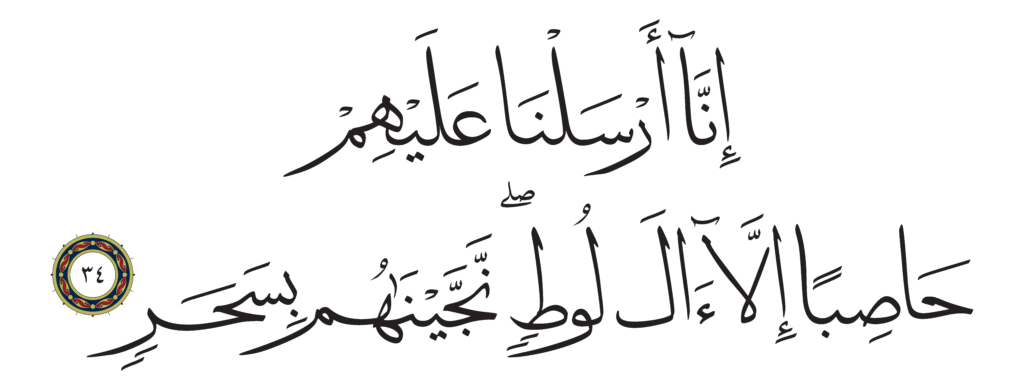 إِنَّآ أَرْسَلْنَا عَلَيْهِمْ
حَاصِبًا إِلَّآ ءَالَ لُوطٍۖ نَّجَّيْنَٰهُم بِسَحَرٍ ٣٤